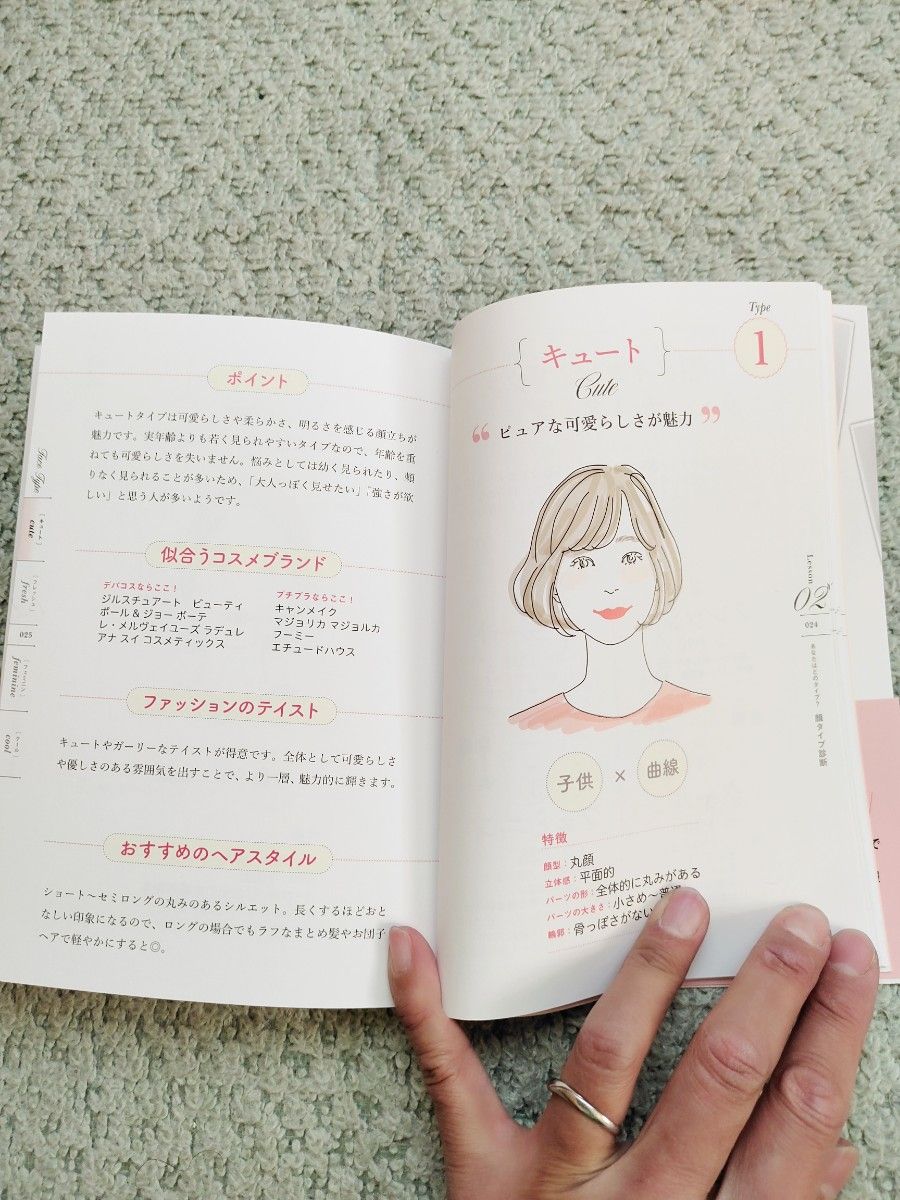 Type
1
キュート
Cute
“ピュアな可愛らしさが魅力”
子供 × 曲線
特徴
顔型：丸顔
立体感：平面的
パーツの形：全体的に丸みがある
パーツの大きさ：小さめ〜普通
輪郭：骨っぽさがない
Lesson
02
024
あなたはどのタイプ？
顔タイプ診断
ポイント
キュートタイプは可愛らしさや柔らかさ、明るさを感じる顔立ちが
魅力です。実年齢よりも若く見られやすいタイプなので、年齢を重
ねても可愛らしさを失いません。悩みとしては幼く見られたり、頼
りなく見られることが多いため、「大人っぽく見せたい」「強さが欲
しい」と思う人が多いようです。
似合うコスメブランド
デパコスならここ！
ジルスチュアート　ビューティ
ポール & ジョー ボーテ
レ・メルヴェイユーズ ラデュレ
アナ スイ コスメティックス
プチプラならここ！
キャンメイク
マジョリカ マジョルカ
フーミー
エチュードハウス
ファッションのテイスト
キュートやガーリーなテイストが得意です。全体として可愛らしさ
や優しさのある雰囲気を出すことで、より一層、魅力的に輝きます。
おすすめのヘアスタイル
ショート〜セミロングの丸みのあるシルエット。長くするほどおと
なしい印象になるので、ロングの場合でもラフなまとめ髪やお団子
ヘアで軽やかにすると◎。
Face Type
［キュート］
cute
［フレッシュ］
fresh
025
［フェミニン］
feminine
［クール］
cool
で